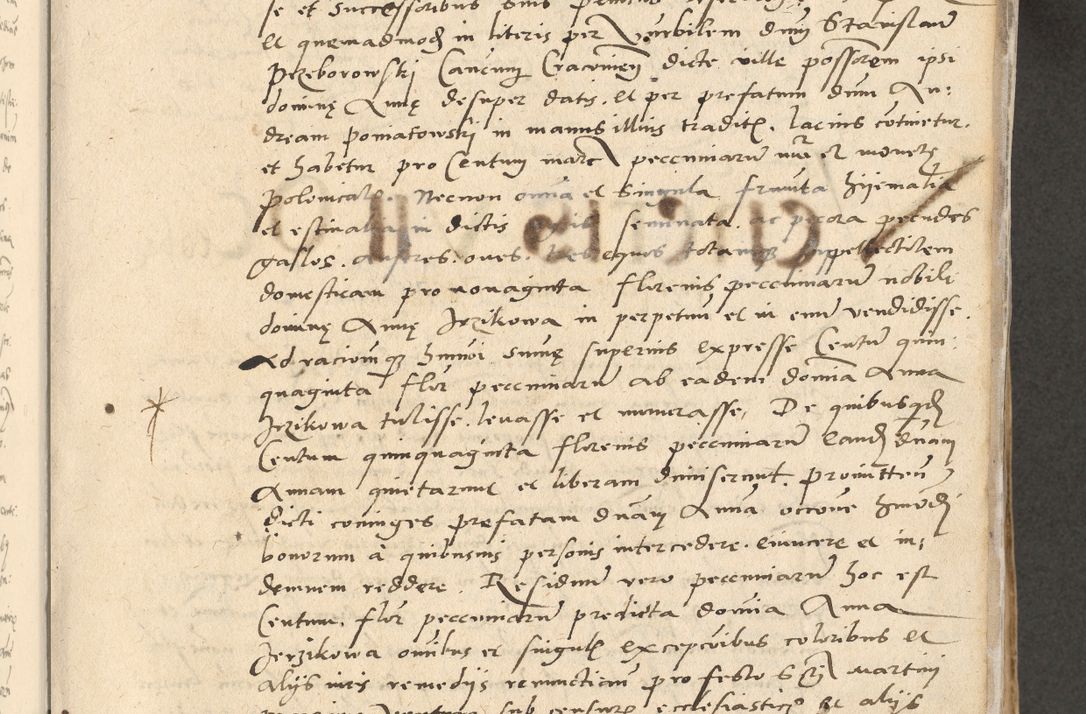 se et Successoribus suis
Et quemadmodq in literis per Venerbilem dnm Stanislaum
Przeborowski Cancum Cracoviен dicte ville possorem ipsi
domine Anne desuper datis. Et per prefatum dnm An:
dream Poniatowski in manus illius tradit. lacius cotinetur.
et habetur pro Centum marc peccuniarum et monete
Polonicalis. Necnon omia et Singula frumta hijemalia
et estivalia in dictis seminata. ac pecora pecudes
gallos. anseres. oves. equos totamq suppellectilem
domesticam pro nonaginta florenis peccuniarum nobili
domine Anne Jrzikowa in perpetuum et in eum vendidisse.
Ad racionem q summe superius expresse Centum quin:
quaginta flor peccuniarum ab eadem domia Anna
Jrzikowa tulisse. levasse et numerasse, De quibusqd
Centum quinquaginta florenis peccuniarum eand dnam
Annam quietarunt et liberam dimiserunt. promitten
dicti coniuges prefatam dnam Anna occone hmodi
bonorum à quibusuis personis intercedere. evincere et in:
demnem reddere. Residuum vero peccuniarum hoc est
Centum. flor peccuniarum predicta domia Anna
Jerzikowa omibus et singulis excepcoibus coloribus et
alijs iuris remedijs remunctians pro festo Sti Martini
sub censuris ecclesiasticis et alijs